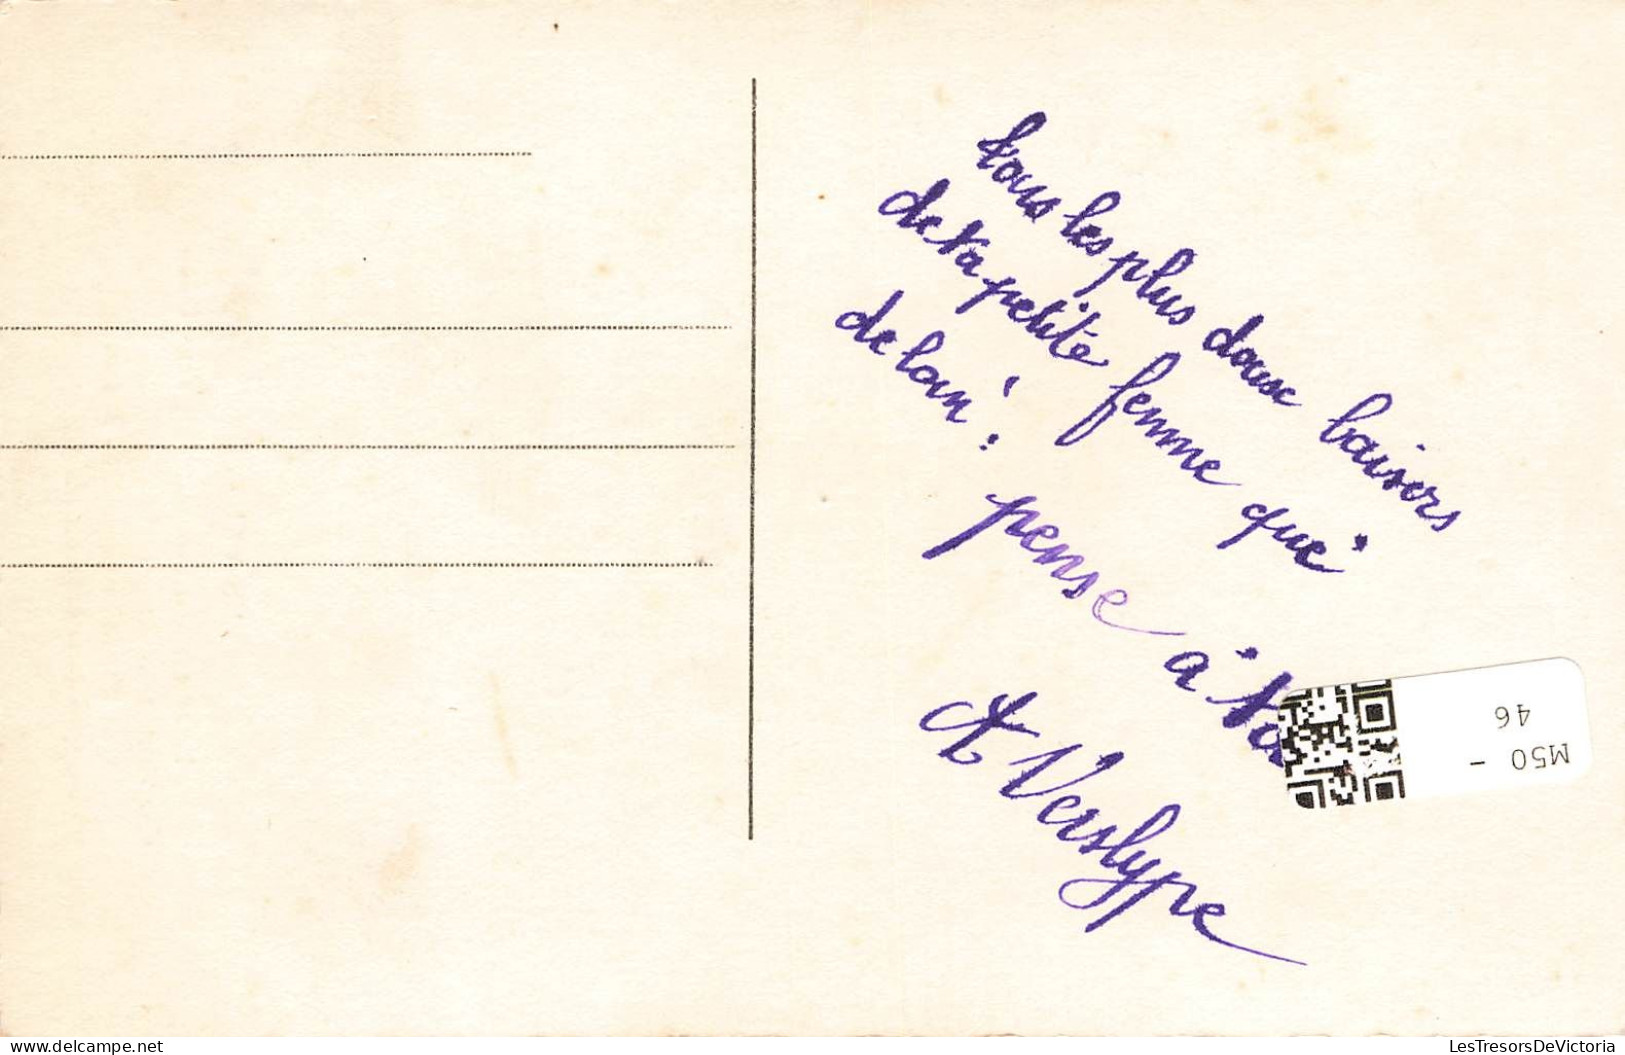 tous les plus doux baisers
de ta petite femme qui
de loin! pense à toi
A Verslype
M50 -
46
delcampe.net
LesTresorsDeVictoria